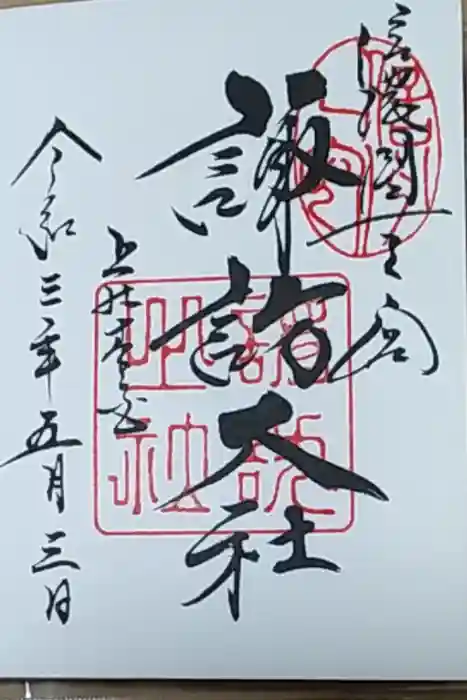 信濃國一之宮
諏訪大社
上社本宮
令和三年五月三日